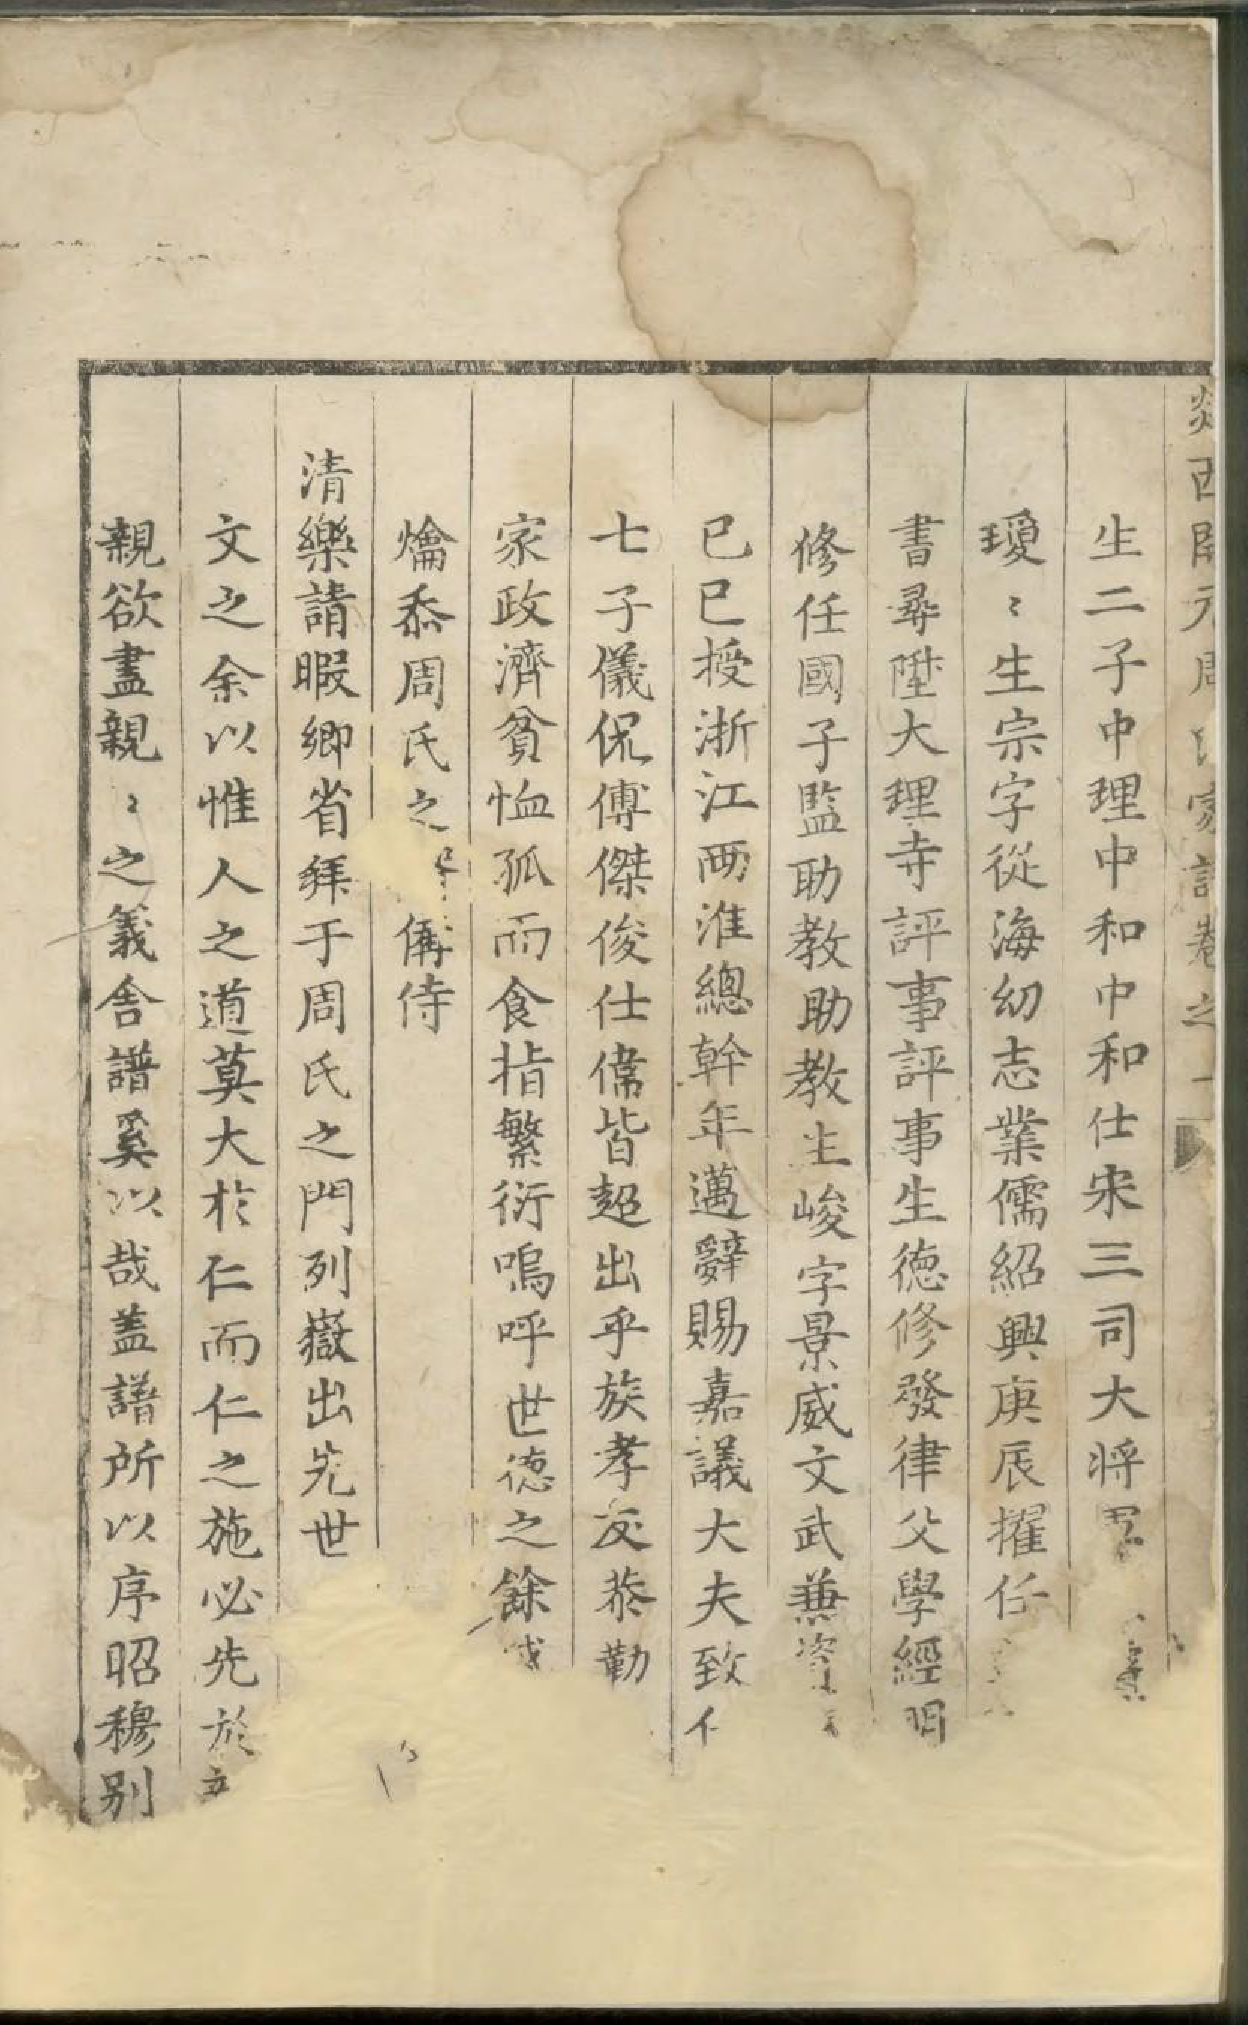 西開元周氏家譜卷之一
生二子中理中和中和仕宋三司大將
璦〻生宗字從海幼志業儒紹興庚辰擢任
書尋陞大理寺評事評事生德修發律父學經明
修任國子監助教助教生峻字景威文武兼資
已巳授浙江西淮總幹年邁辭賜嘉議大夫致仕
七子儀侃傅傑俊仕偉皆超出乎族孝友恭勤
家政濟貧恤孤而食指繁衍嗚呼世德之餘
爚忝周氏之 備侍
清樂請暇鄉省拜于周氏之門列嶽出先世
文之余以惟人之道莫大於仁而仁之施必先於
親欲盡親〻之義舍譜奚以哉蓋譜所以序昭穆別